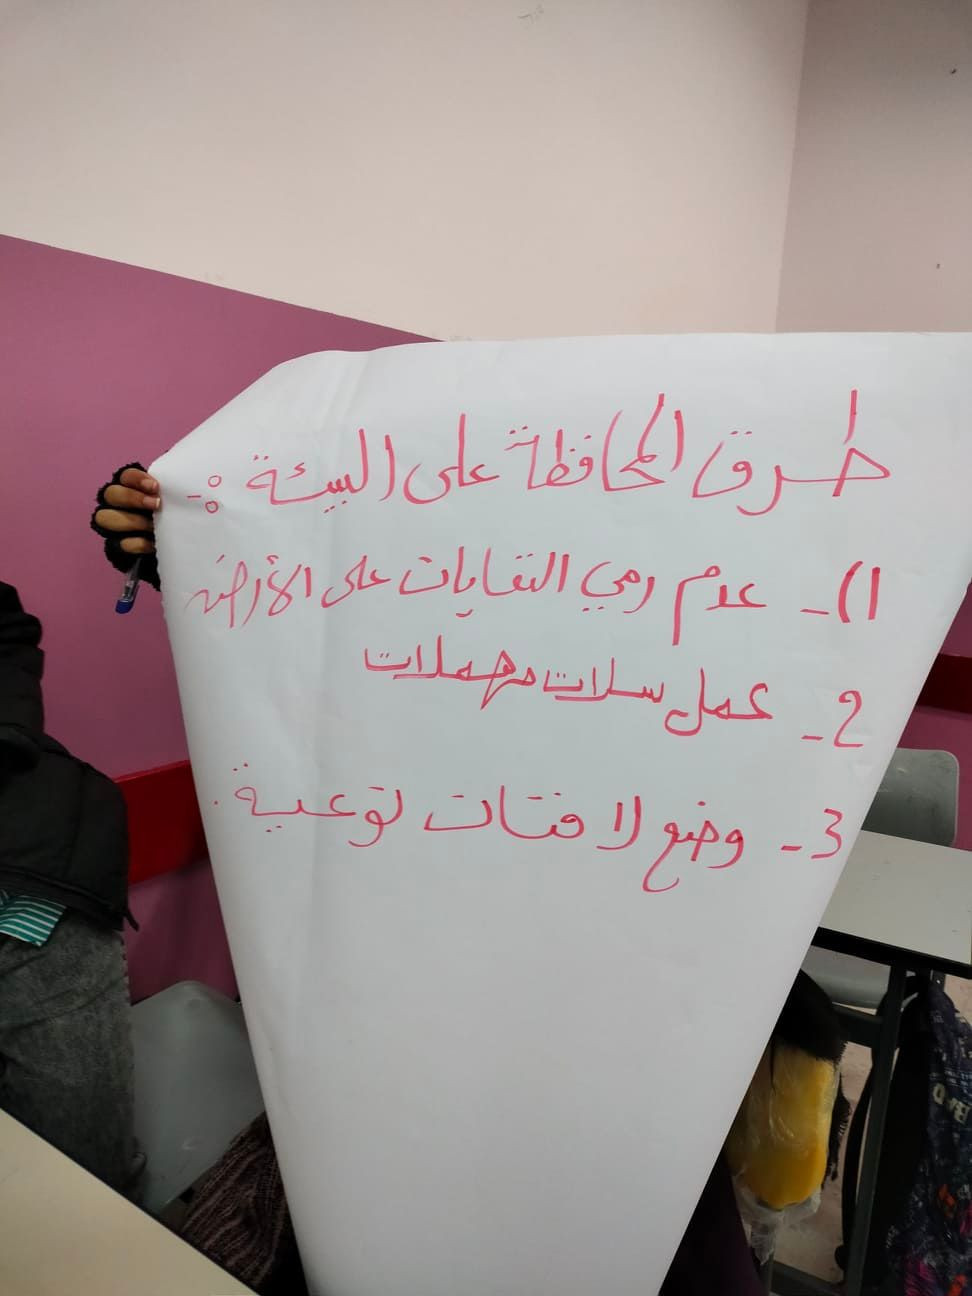 طرق المحافظة على البيئة :-
1)- عدم رمي النفايات على الأرض
2- عمل سلات مهملات
3- وضع لافتات توعية.